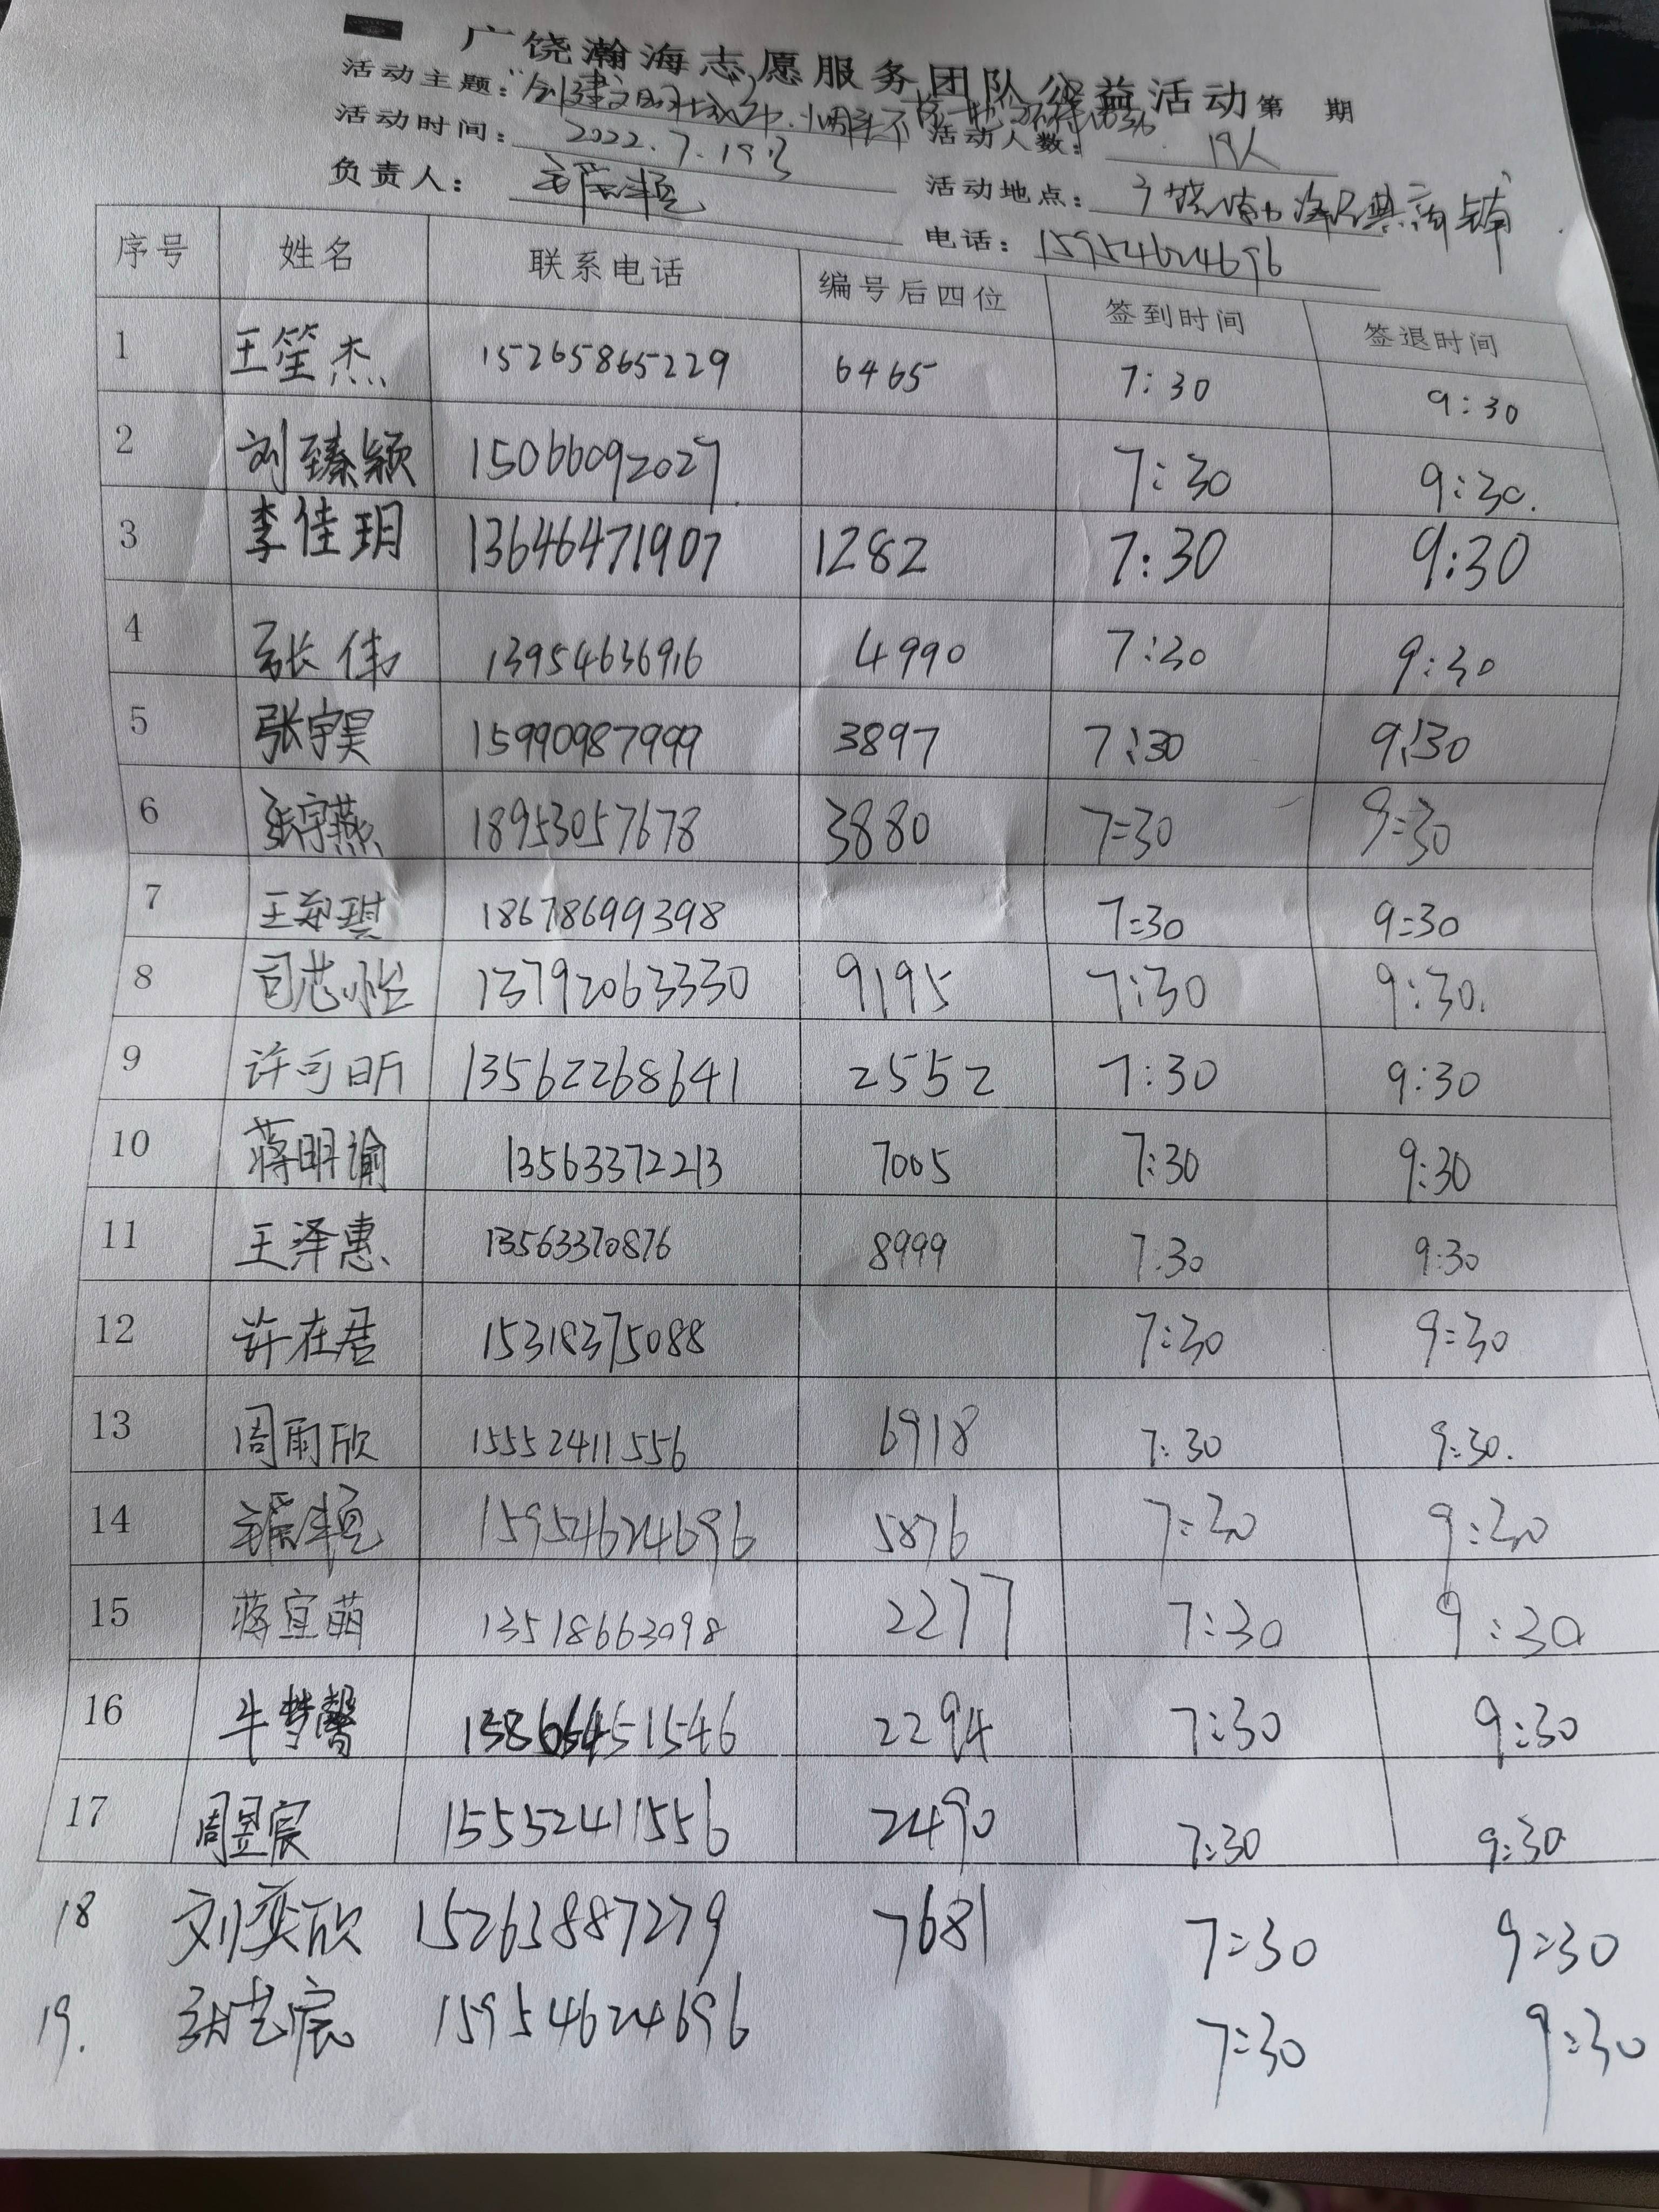 广饶瀚海志愿服务团队公益活动第 期
活动主题：“创建文明城市，烟头不落地
活动时间：2022.7.19号 活动人数：19人
负责人： 活动地点：广饶
电话：15954624696
序号 姓名 联系电话 编号后四位 签到时间 签退时间
1 王笙杰 15265865229 6465 7:30 9:30
2 刘臻颖 15066092027. 7:30 9:30.
3 李佳玥 13646471907 1282 7:30 9:30
4 张伟 13954636916 4990 7:30 9:30
5 张宇昊 15990987999 3897 7:30 9:30
6 张宇燕 18953057678 3880 7:30 9:30
7 王郑琪 18678699398 7:30 9:30
8 司芯怡 13792063330 9195 7:30 9:30.
9 许可昕 13562268641 2552 7:30 9:30
10 蒋明谕 13563372213 7005 7:30 9:30
11 王泽惠 13563370876 8999 7:30 9:30
12 许在君 15318375088 7:30 9:30
13 周雨欣 15552411556 6918 7:30 9:30.
14 15954624696 5876 7:30 9:30
15 蒋宜萌 13518663098 2277 7:30 9:30
16 牛梦馨 2294 7:30 9:30
17 周昱宸 15552411556 2490 7:30 9:30
18 刘奕欣 15263887279 7681 7:30 9:30
19. 艺宸 15954624696 7:30 9:30